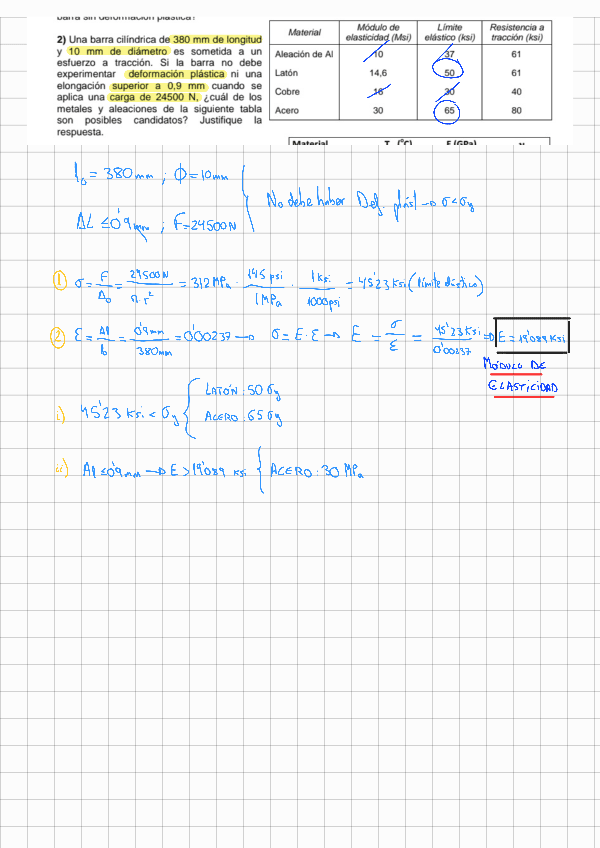 barra sin deformación plástica?
2) Una barra cilíndrica de 380 mm de longitud
y 10 mm de diámetro es sometida a un
esfuerzo a tracción. Si la barra no debe
experimentar deformación plástica ni una
elongación superior a 0,9 mm cuando se
aplica una carga de 24500 N, ¿cuál de los
metales y aleaciones de la siguiente tabla
son posibles candidatos? Justifique la
respuesta.
Material Módulo de elasticidad (Msi) Límite elástico (ksi) Resistencia a tracción (ksi)
Aleación de Al 10 37 61
Latón 14,6 50 61
Cobre 16 30 40
Acero 30 65 80
Material E (GPa)
l₀ = 380mm ; ϕ = 10mm
ΔL ≤ 0'9mm ; F = 24500N
No debe haber Def. plást → σ < σy
1) σ = F/A₀ = 24500N/π·r² = 312 MPa · 145 psi/1 MPa · 1 ksi/1000 psi = 45'23 Ksi (límite elástico)
2) ε = Δl/l₀ = 0'9mm/380mm = 0'00237 → σ = E·ε → E = σ/ε = 45'23 Ksi/0'00237 ⇒ E = 19'089 Ksi
MÓDULO DE
ELASTICIDAD
i) 45'23 Ksi < σy { LATÓN : 50 σy
ACERO : 65 σy
ii) Δl ≤ 0'9mm → E > 19'089 Ksi { ACERO : 30 MPa